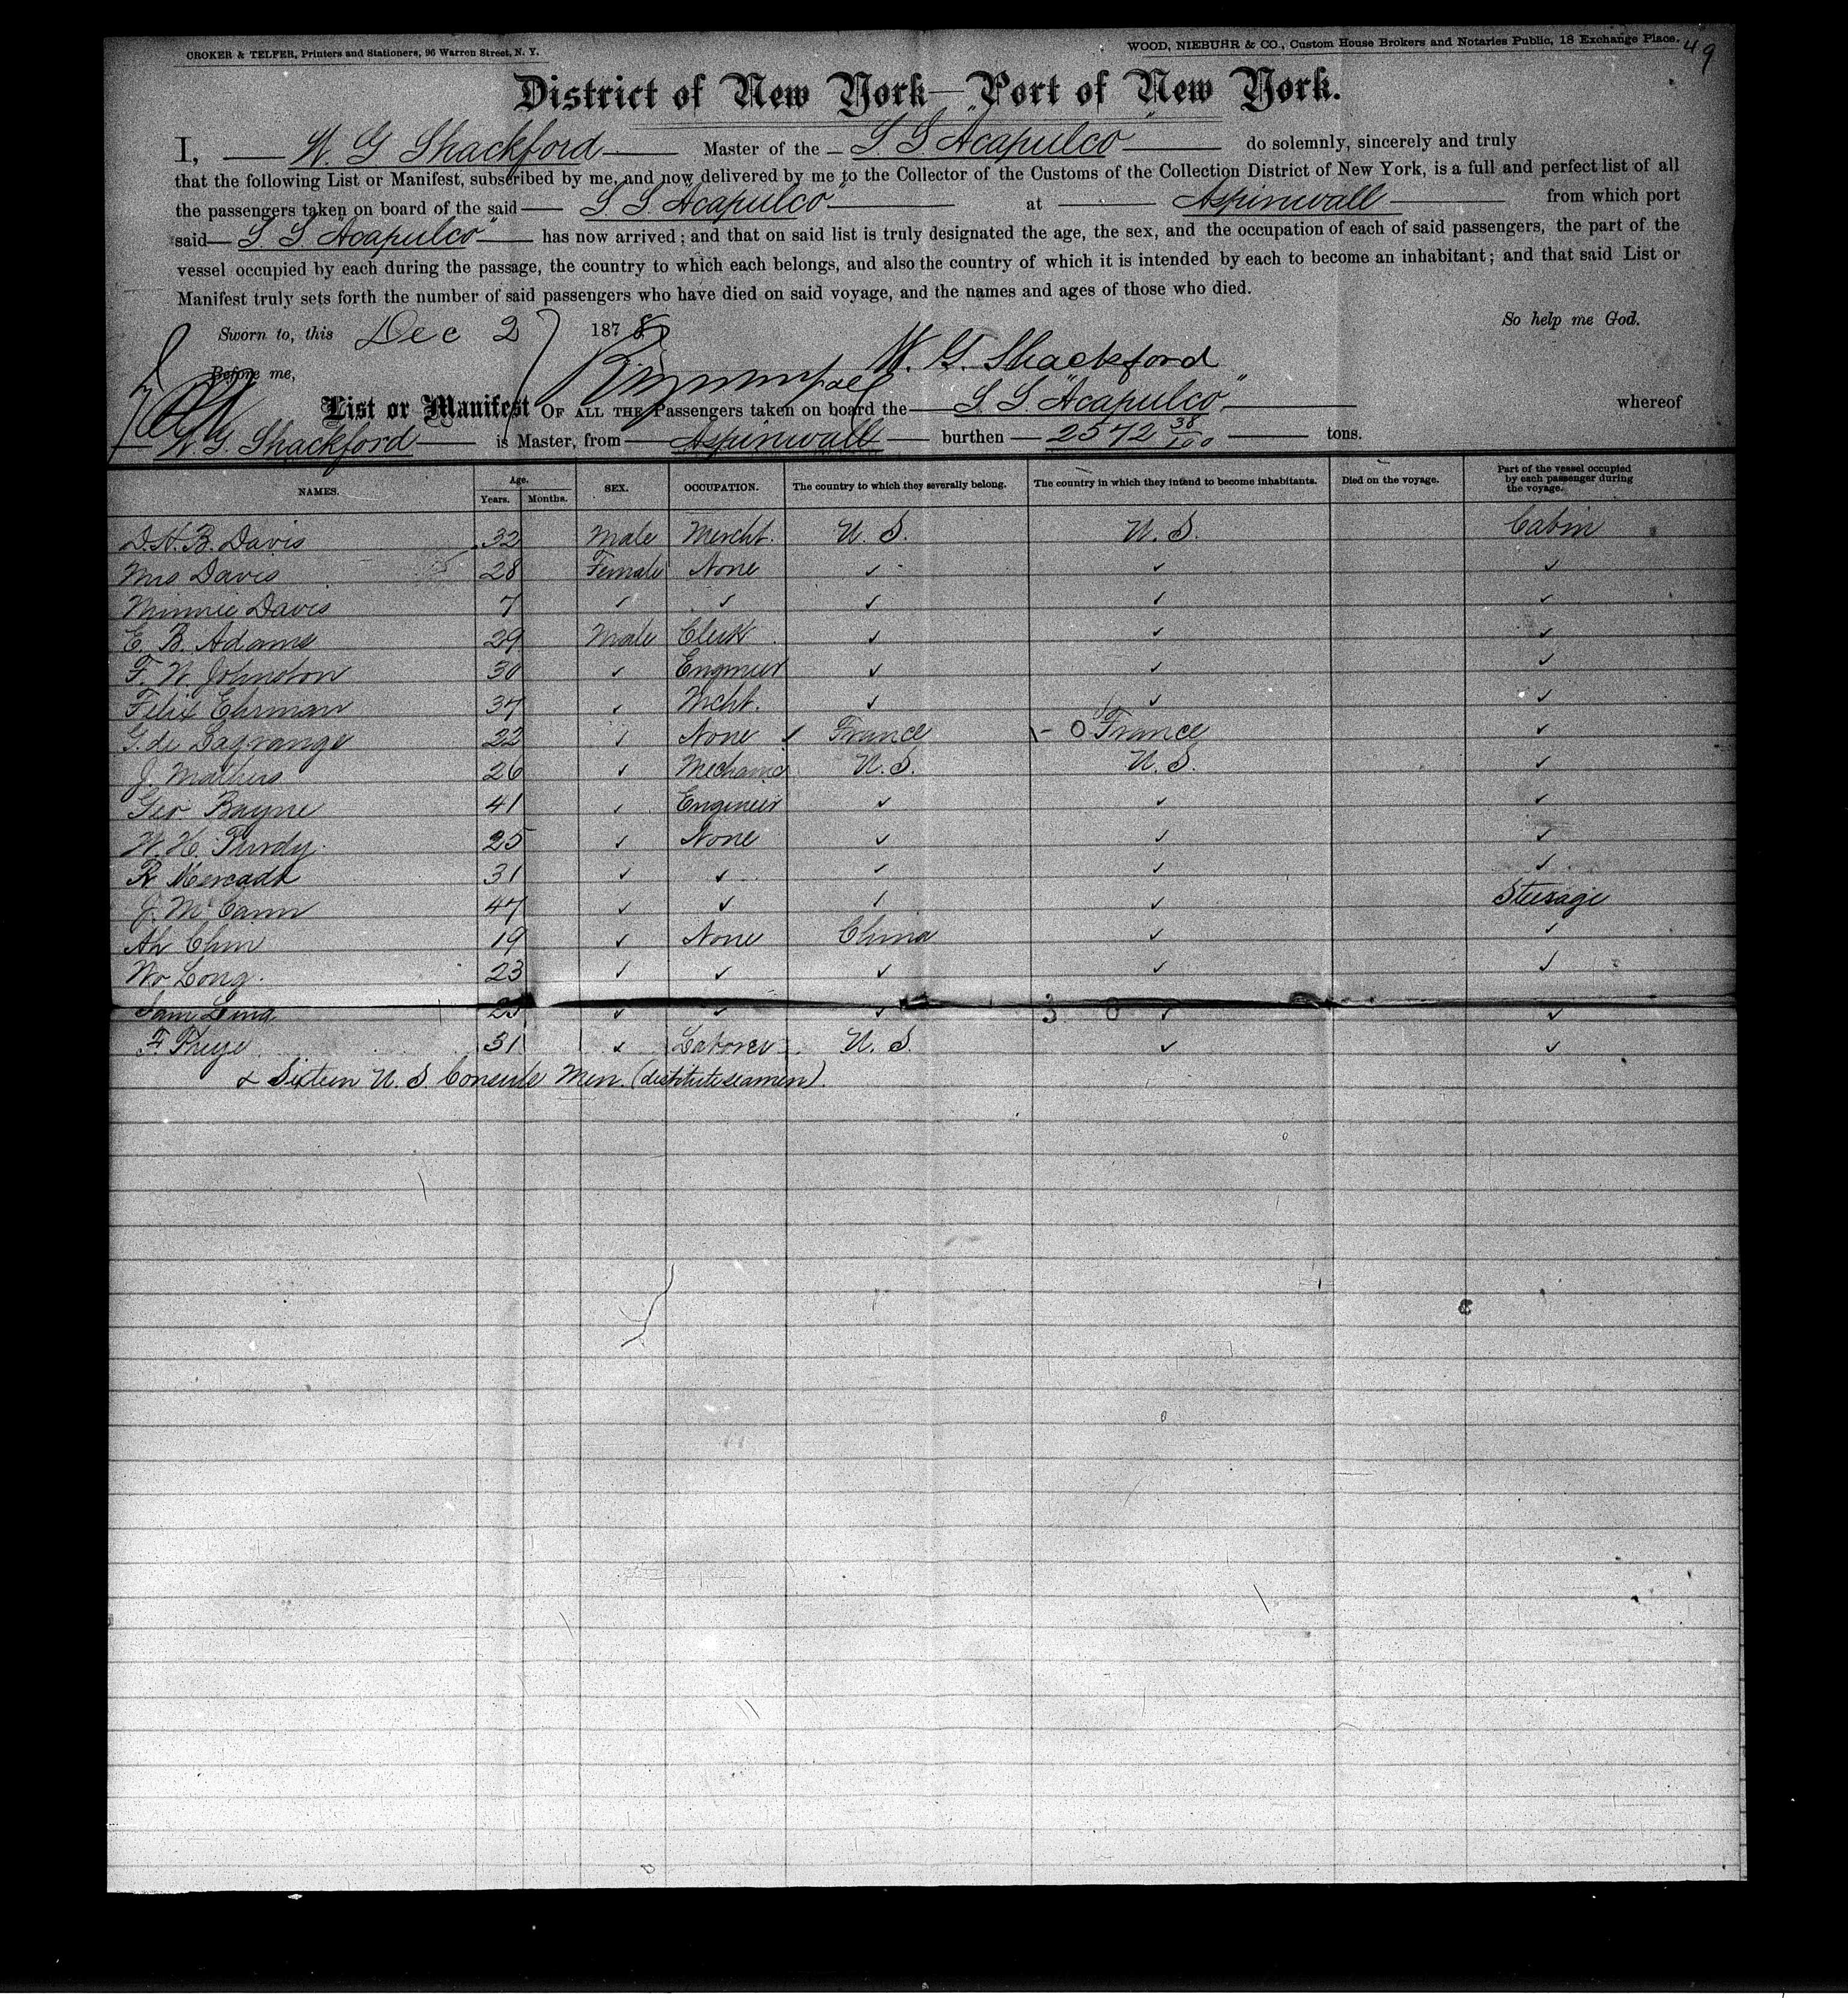 CROKER & TELFER, Printers and Stationers, 96 Warren Street, N. Y.
WOOD, NIEBUHR & CO., Custom House Brokers and Notaries Public, 18 Exchange Place.
49
District of New York—Port of New York.
I, W. G Shackford Master of the S. S. "Acapulco" do solemnly, sincerely and truly
that the following List or Manifest, subscribed by me, and now delivered by me to the Collector of the Customs of the Collection District of New York, is a full and perfect list of all
the passengers taken on board of the said S S. "Acapulco" at Aspinwall from which port
said S S "Acapulco" has now arrived; and that on said list is truly designated the age, the sex, and the occupation of each of said passengers, the part of the
vessel occupied by each during the passage, the country to which each belongs, and also the country of which it is intended by each to become an inhabitant; and that said List or
Manifest truly sets forth the number of said passengers who have died on said voyage, and the names and ages of those who died.
Sworn to, this Dec 27 1878 So help me God.
Before me, W. G. Shackford
List or Manifest OF ALL THE Passengers taken on board the S. S. "Acapulco" whereof
W. G. Shackford is Master, from Aspinwall burthen 2572 38/100 tons.
NAMES. Age. Years. Months. SEX. OCCUPATION. The country to which they severally belong. The country in which they intend to become inhabitants. Died on the voyage. Part of the vessel occupied by each passenger during the voyage.
D. H. B. Davis 32 Male Mercht. U. S. U. S. Cabin
Mrs Davis 28 Female None ✓ ✓ ✓
Minnie Davis 7 ✓ ✓ ✓ ✓ ✓
E. B. Adams 29 Male Clerk ✓ ✓ ✓
F. W. Johnston 30 ✓ Engineer ✓ ✓ ✓
Felix Ehrman 37 ✓ Mcht. ✓ ✓ ✓
G. de Lagrange 22 ✓ None France France ✓
J. Mathers 26 ✓ Mechanic U. S. U. S. ✓
Geo Bayne 41 ✓ Engineer ✓ ✓ ✓
W. H. Purdy. 25 ✓ None ✓ ✓ ✓
R Mercado 31 ✓ ✓ ✓ ✓ ✓
J. McCann 47 ✓ ✓ ✓ ✓ Steerage
Ah Chin 19 ✓ None China ✓ ✓
Wo Long. 23 ✓ ✓ ✓ ✓ ✓
Sam 25 ✓ ✓ ✓ 3 0 ✓ ✓
F. 31 ✓ Laborer U. S. ✓ ✓
& Sixteen U. S Consuls Men. (destitute seamen).